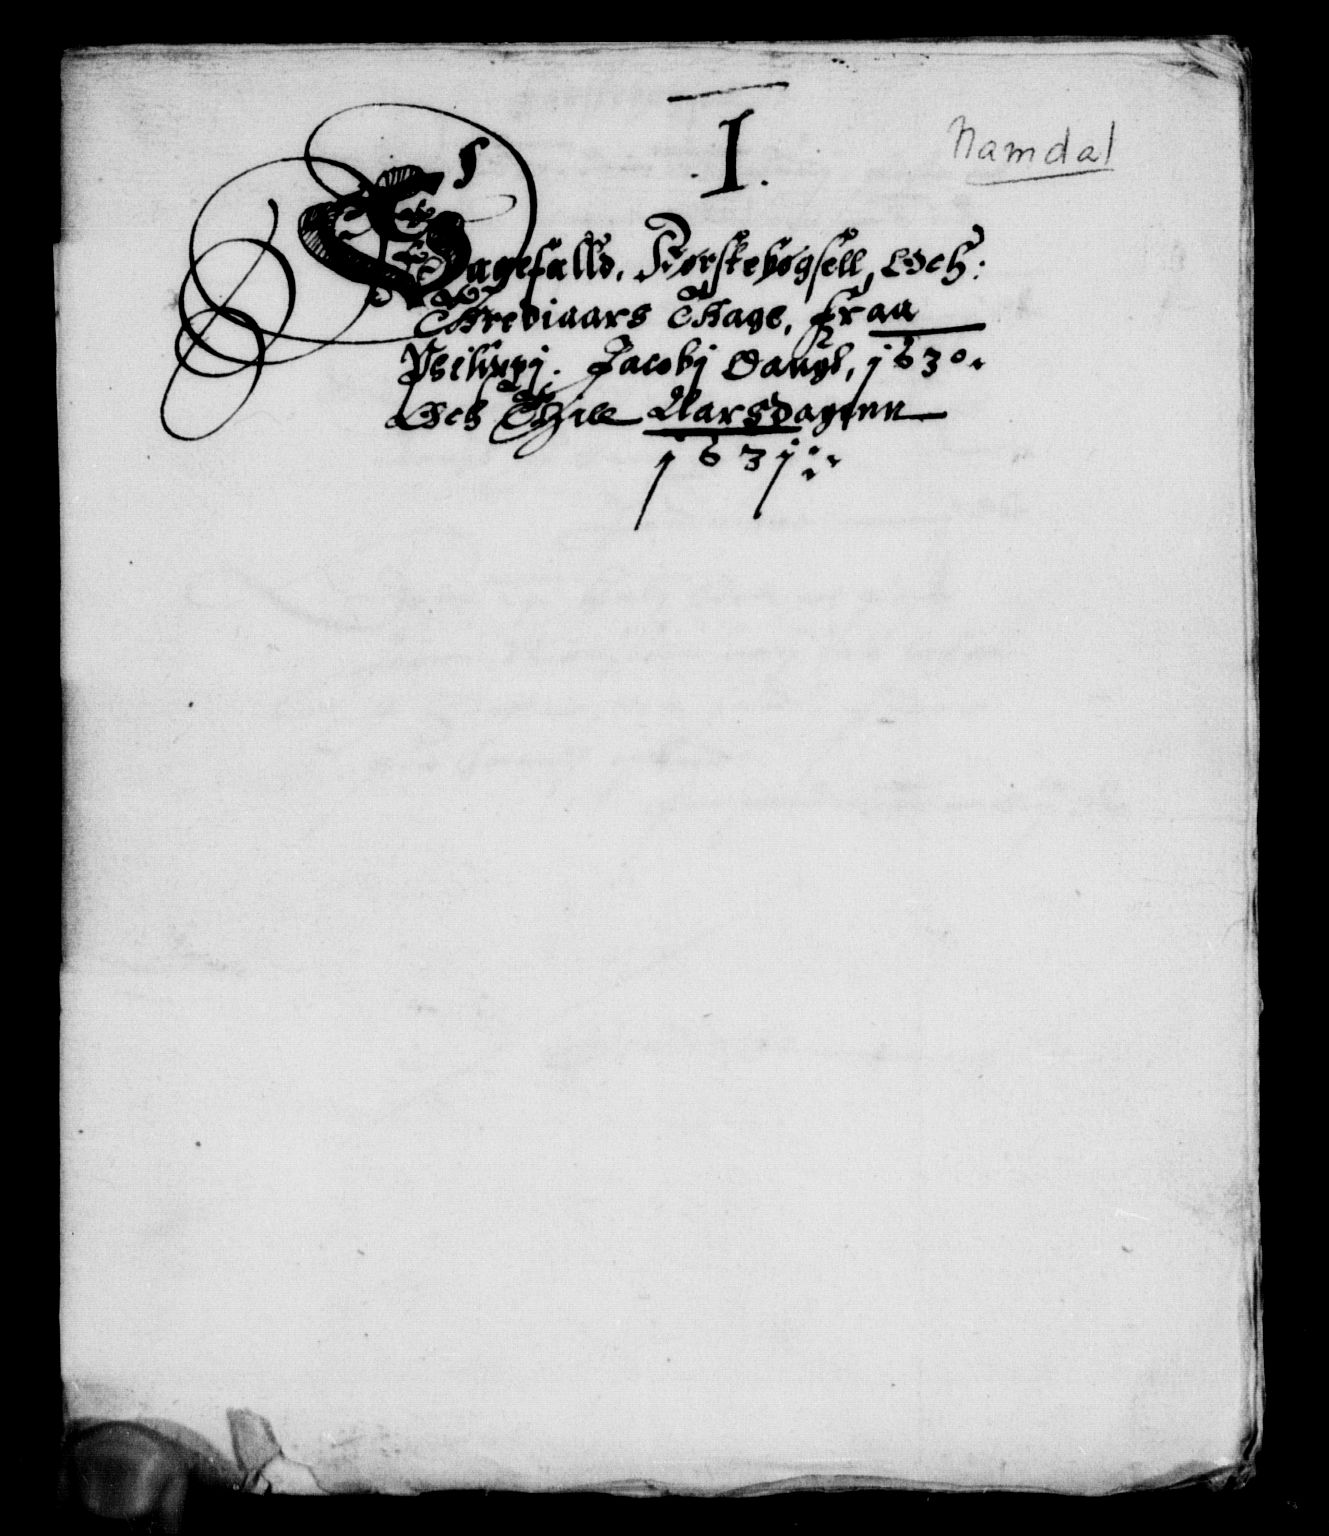 I.
Namdal
Sagefalld, Førstebøgsell, Och:
Thrediaars Thage, fraa
Philippi. Jacobj Daugh, 1630.
Och Thill Aarsdagenn
1631